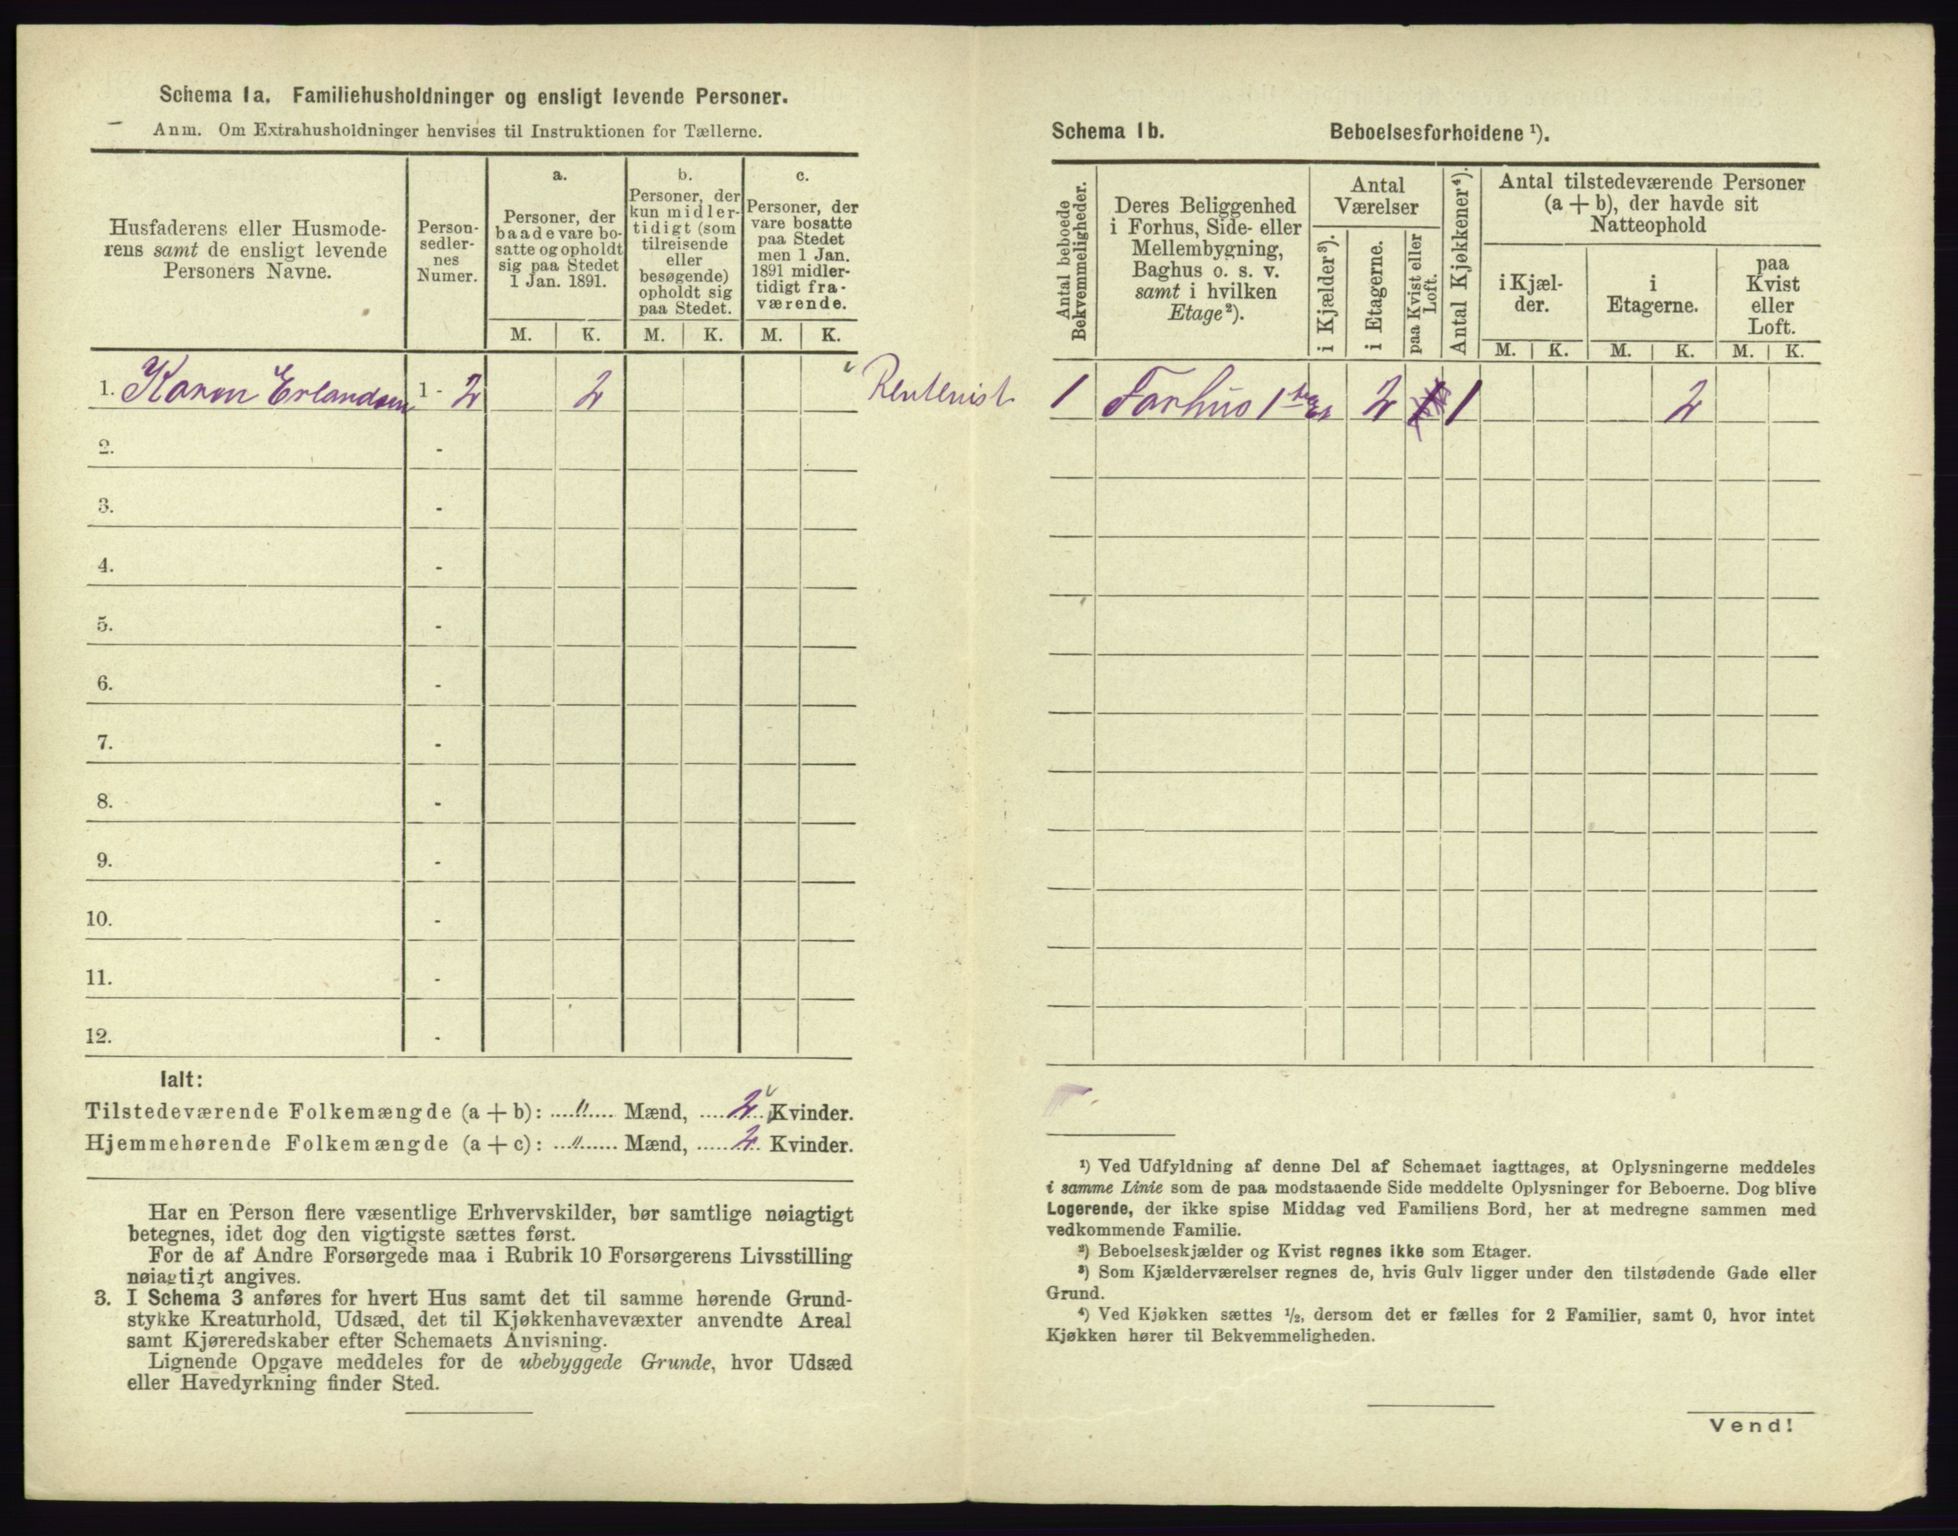 Schema 1a. Familiehusholdninger og ensligt levende Personer.
Anm. Om Extrahusholdninger henvises til Instruktionen for Tællerne.
Husfaderens eller Husmode-
rens samt de ensligt levende
Personers Navne.
Person-
sedler-
nes
Numer.
a.
Personer, der
baade vare bo-
satte og opholdt
sig paa Stedet
1 Jan. 1891.
b.
Personer, der
kun midler-
tidigt (som
tilreisende
eller
besøgende)
opholdt sig
paa Stedet.
c.
Personer, der
vare bosatte
paa Stedet
men 1 Jan.
1891 midler-
tidigt fra-
værende.
M. K. M. K. M. K.
1. Karen Erlandsen 1 - 2 2 Rentenist
2. -
3. -
4. -
5. -
6. -
7. -
8. -
9. -
10. -
11. -
12. -
Ialt:
Tilstedeværende Folkemængde (a + b): .... " .... Mænd, .... 2 ... Kvinder.
Hjemmehørende Folkemængde (a + c): ... " ...... Mænd, ..... 2 .. Kvinder.
Har en Person flere væsentlige Erhvervskilder, bør samtlige nøiagtigt
betegnes, idet dog den vigtigste sættes først.
For de af Andre Forsørgede maa i Rubrik 10 Forsørgerens Livsstilling
nøiagtigt angives.
3. I Schema 3 anføres for hvert Hus samt det til samme hørende Grund-
stykke Kreaturhold, Udsæd, det til Kjøkkenhavevæxter anvendte Areal
samt Kjøreredskaber efter Schemaets Anvisning.
Lignende Opgave meddeles for de ubebyggede Grunde, hvor Udsæd
eller Havedyrkning finder Sted.
Schema 1b. Beboelsesforholdene ¹).
Antal beboede
Bekvemmeligheder.
Deres Beliggenhed
i Forhus, Side- eller
Mellembygning,
Baghus o. s. v.
samt i hvilken
Etage²).
Antal
Værelser
i Kjælder³).
i Etagerne.
paa Kvist eller
Loft.
Antal Kjøkkener⁴).
Antal tilstedeværende Personer
(a + b), der havde sit
Natteophold
i Kjæl-
der.
i
Etagerne.
paa
Kvist
eller
Loft.
M. K. M. K. M. K.
1 Forhus 1ste Et 2 1 2
¹) Ved Udfyldning af denne Del af Schemaet iagttages, at Oplysningerne meddeles
i samme Linie som de paa modstaaende Side meddelte Oplysninger for Beboerne. Dog blive
Logerende, der ikke spise Middag ved Familiens Bord, her at medregne sammen med
vedkommende Familie.
²) Beboelseskjælder og Kvist regnes ikke som Etager.
³) Som Kjælderværelser regnes de, hvis Gulv ligger under den tilstødende Gade eller
Grund.
⁴) Ved Kjøkken sættes ½, dersom det er fælles for 2 Familier, samt 0, hvor intet
Kjøkken hører til Bekvemmeligheden.
Vend!